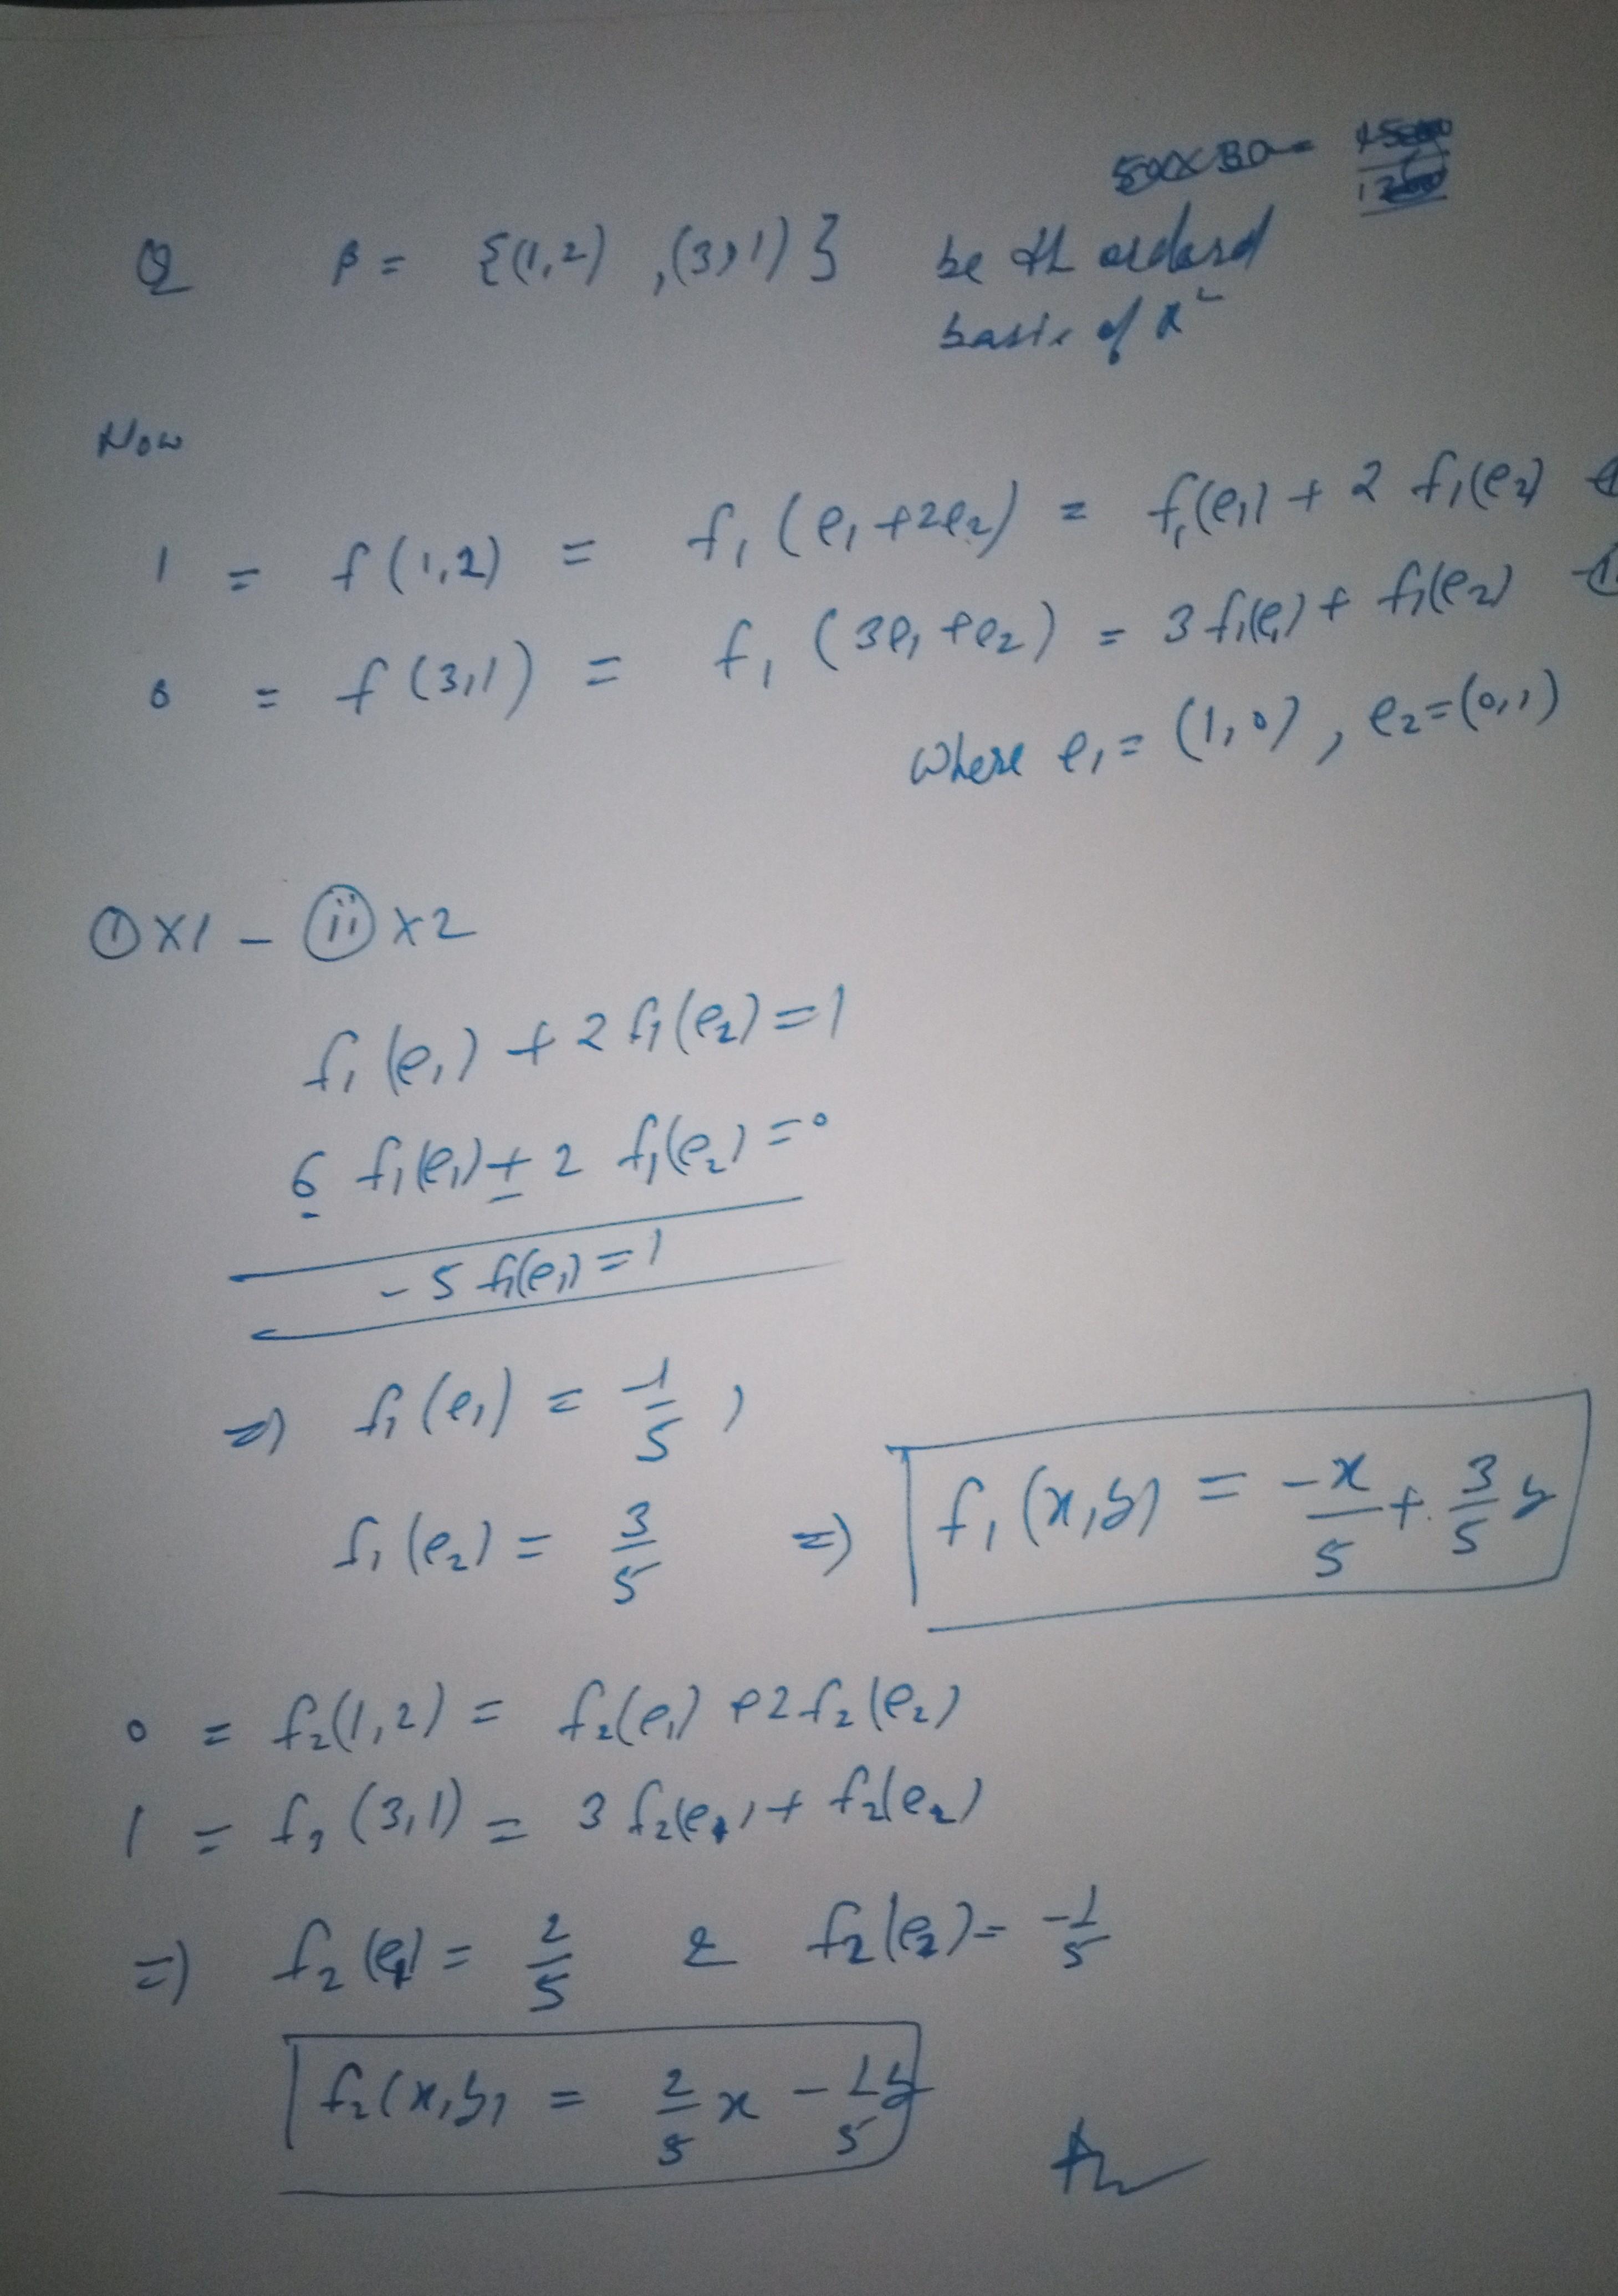 Q β = {(1,2) , (3,1)} be th ordered
basis of R²
Now
1 = f(1,2) = f₁(e₁+2e₂) = f₁(e₁) + 2 f₁(e₂)
0 = f(3,1) = f₁(3e₁+e₂) = 3f₁(e₁) + f₁(e₂)
Where e₁ = (1,0), e₂=(0,1)
① X1 - ⓘⓘ X2
f₁(e₁) + 2 f₁(e₂) = 1
6 f₁(e₁) + 2 f₁(e₂) = 0
- 5 f₁(e₁) = 1
=) f₁(e₁) = -1/5 ,
f₁(e₂) = 3/5 =) f₁(x,y) = -x/5 + 3/5 y
0 = f₂(1,2) = f₂(e₁) + 2f₂(e₂)
1 = f₂(3,1) = 3 f₂(e₁) + f₂(e₂)
=) f₂(e₁) = 2/5 & f₂(e₂) = -1/5
f₂(x,y) = 2/5 x - 1/5 y